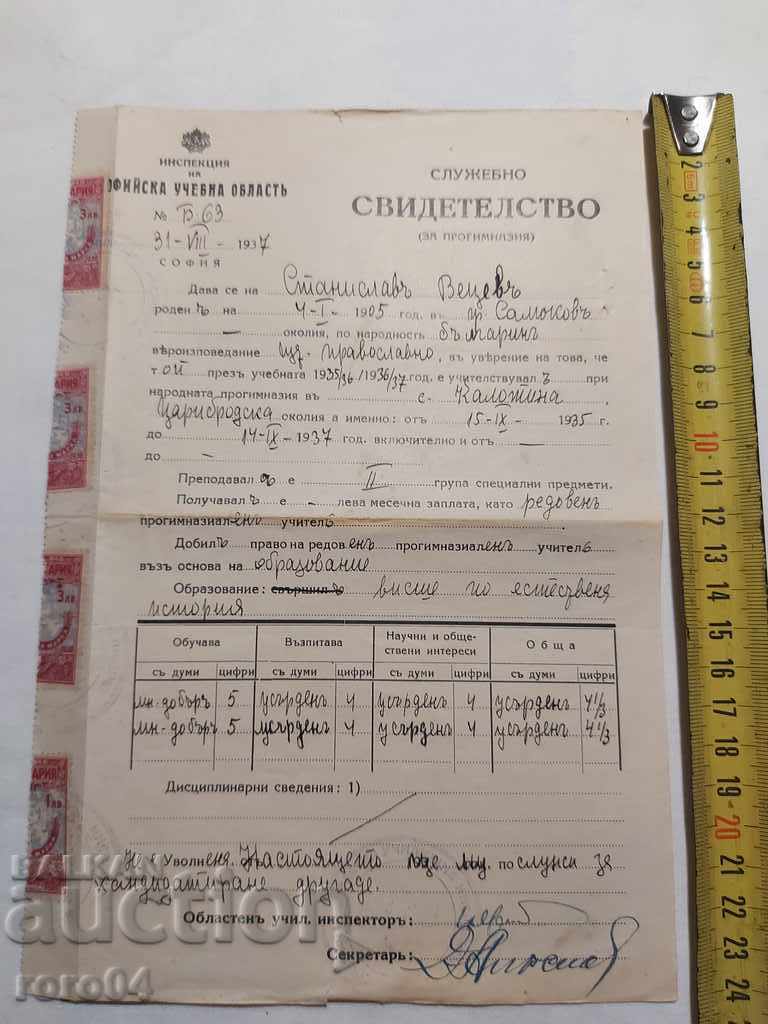 ИНСПЕКЦИЯ
НА
ФИЙСКА УЧЕБНА ОБЛАСТЬ
№ Б 63
31-VIII - 1937
СОФИЯ
СЛУЖЕБНО
СВИДЕТЕЛСТВО
(ЗА ПРОГИМНАЗИЯ)
Дава се на Станиславъ Вецевъ
роденъ на 4-I- 1905 год. въ гр. Самоковъ
— околия, по народность българинъ
вѣроизповедание изт. православно, въ увѣрение на това, че
той презъ учебната 1935/36/1936/37 год. е учителствувалъ при
народната прогимназия въ с. Каложина
Царибродска околия а именно: отъ 15-IX- 1935 г.
до 14-IX- 1937 год. включително и отъ —
до —
Преподавалъ е II група специални предмети.
Получавалъ е - лева месечна заплата, като редовенъ
прогимназиаленъ учитель
Добилъ право на редовенъ прогимназиаленъ учитель
възъ основа на образование
Образование: свършилъ висше по естествена
история
Обучава Възпитава Научни и обще-ствени интереси Обща
съ думи цифри съ думи цифри съ думи цифри съ думи цифри
мн. добъръ 5 усърденъ 4 усърденъ 4 усърденъ 4 1/3
мн. добъръ 5 усърденъ 4 усърденъ 4 усърденъ 4 1/3
Дисциплинарни сведения: 1)
Не е Уволненъ. Настоящето ще му послужи за
кандидатиране другаде.
Областенъ учил. инспекторъ:
Секретарь:
3 ЛВ.
3 ЛВ.
3 ЛВ.
1 ЛВ.
BALKAN
auction
roro04
2 3 4 5 6 7 8 9 10 11 12 13 14 15 16 17 18 19 20 21 22 23 24